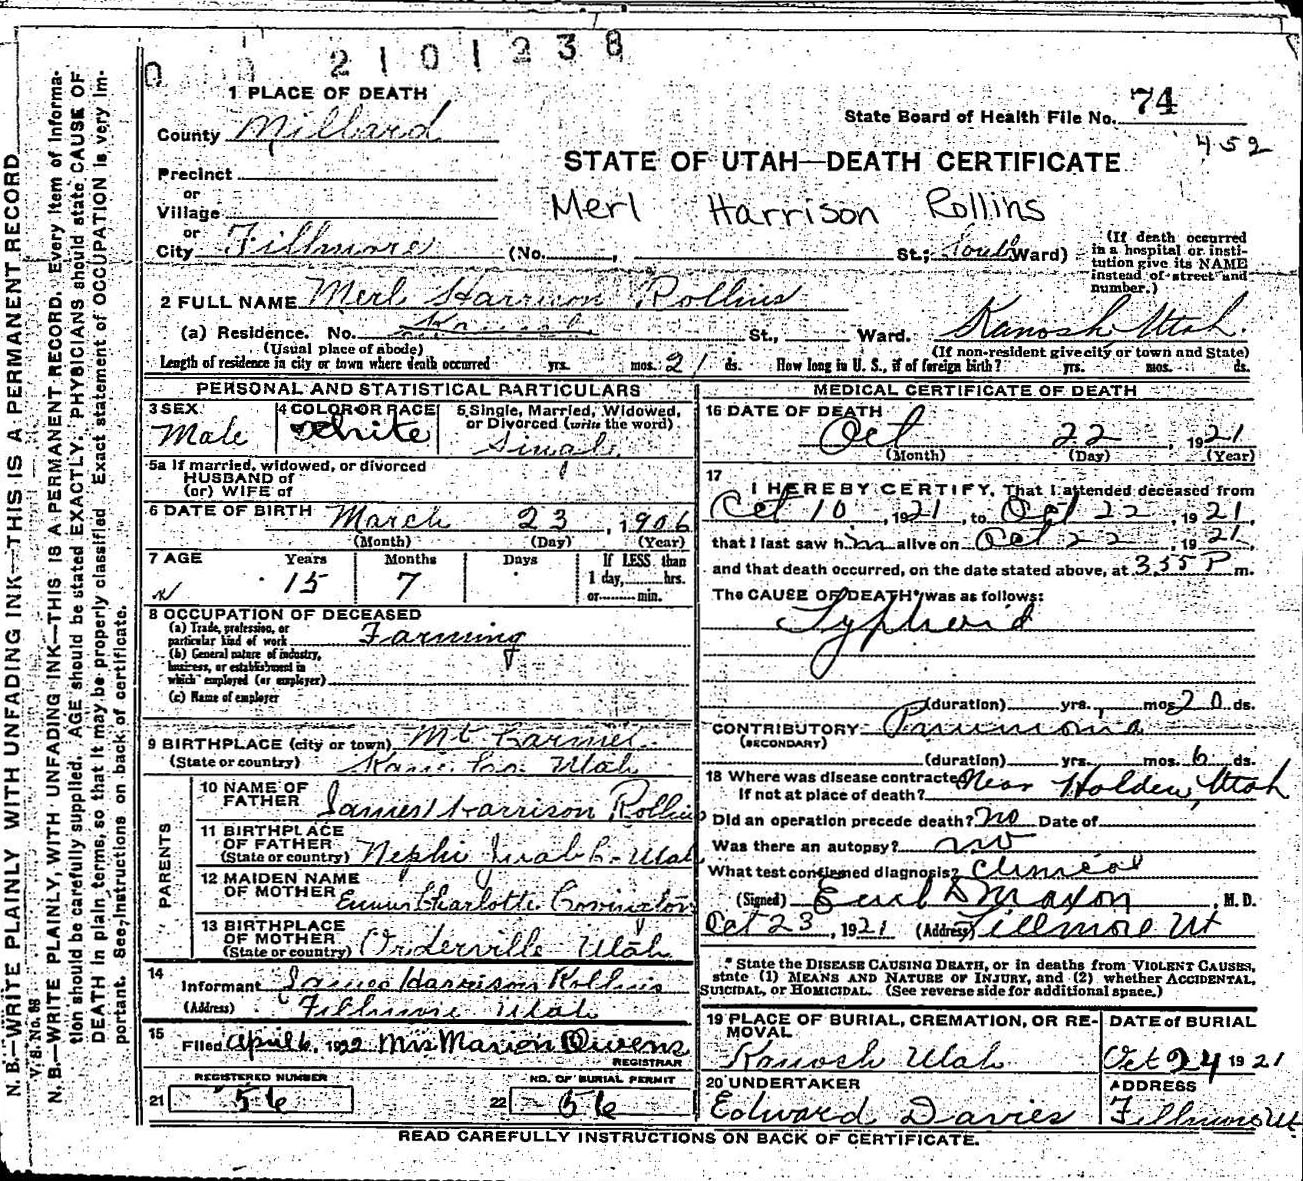 2101238
1 PLACE OF DEATH
County Millard
State Board of Health File No. 74
452
STATE OF UTAH—DEATH CERTIFICATE
Precinct
or
Village
Merl Harrison Rollins
or
City Fillmore (No. , St.; Ward)
(If death occurred in a hospital or institution give its NAME instead of street and number.)
2 FULL NAME Merl Harrison Rollins
(a) Residence. No. St., Ward. Kanosh, Utah.
(Usual place of abode) (If non-resident give city or town and State)
Length of residence in city or town where death occurred yrs. mos. 21 ds. How long in U. S., if of foreign birth? yrs. mos. ds.
PERSONAL AND STATISTICAL PARTICULARS
3 SEX Male
4 COLOR OR RACE White
5 Single, Married, Widowed, or Divorced (write the word) Single
5a If married, widowed, or divorced
HUSBAND of
(or) WIFE of
6 DATE OF BIRTH March 23, 1906
(Month) (Day) (Year)
7 AGE Years Months Days If LESS than
15 7 1 day, hrs.
or min.
8 OCCUPATION OF DECEASED
(a) Trade, profession, or
particular kind of work Farming
(b) General nature of industry,
business, or establishment in
which employed (or employer)
(c) Name of employer
9 BIRTHPLACE (city or town) Mt Carmel
(State or country) Kane Co. Utah
PARENTS
10 NAME OF FATHER James Harrison Rollins
11 BIRTHPLACE OF FATHER (State or country) Nephi Juab Co- Utah
12 MAIDEN NAME OF MOTHER Emma Charlotte Covington
13 BIRTHPLACE OF MOTHER (State or country) Orderville Utah
14 Informant James Harrison Rollins
(Address) Fillmore Utah
15 Filed April 6, 1922 Mrs Marion Owens
REGISTRAR
REGISTERED NUMBER NO. OF BURIAL PERMIT
21 56 22 56
MEDICAL CERTIFICATE OF DEATH
16 DATE OF DEATH
Oct 22, 1921
(Month) (Day) (Year)
17 I HEREBY CERTIFY, That I attended deceased from
Oct 10, 1921, to Oct 22, 1921,
that I last saw him alive on Oct 22, 1921,
and that death occurred, on the date stated above, at 3.55 P m.
The CAUSE OF DEATH* was as follows:
Typhoid
(duration) yrs., mos. 20 ds.
CONTRIBUTORY Pneumonia
(SECONDARY)
(duration) yrs. mos. 6 ds.
18 Where was disease contracted Near Holden, Utah
If not at place of death?
Did an operation precede death? no Date of
Was there an autopsy? no
What test confirmed diagnosis? Clinical
(Signed) , M. D.
Oct 23, 1921 (Address) Fillmore Ut
* State the DISEASE CAUSING DEATH, or in deaths from VIOLENT CAUSES,
state (1) MEANS AND NATURE OF INJURY, and (2) whether ACCIDENTAL,
SUICIDAL, or HOMICIDAL. (See reverse side for additional space.)
19 PLACE OF BURIAL, CREMATION, OR REMOVAL
Kanosh Utah
DATE of BURIAL
Oct 24 1921
20 UNDERTAKER
Edward Davies
ADDRESS
Fillmore Ut
READ CAREFULLY INSTRUCTIONS ON BACK OF CERTIFICATE.
N. B.—WRITE PLAINLY WITH UNFADING INK—THIS IS A PERMANENT RECORD
V. S. No. 88
N. B.—WRITE PLAINLY, WITH UNFADING INK—THIS IS A PERMANENT RECORD. Every item of informa-
tion should be carefully supplied. AGE should be stated EXACTLY. PHYSICIANS should state CAUSE OF
DEATH in plain terms, so that it may be properly classified. Exact statement of OCCUPATION is very im-
portant. See Instructions on back of certificate.